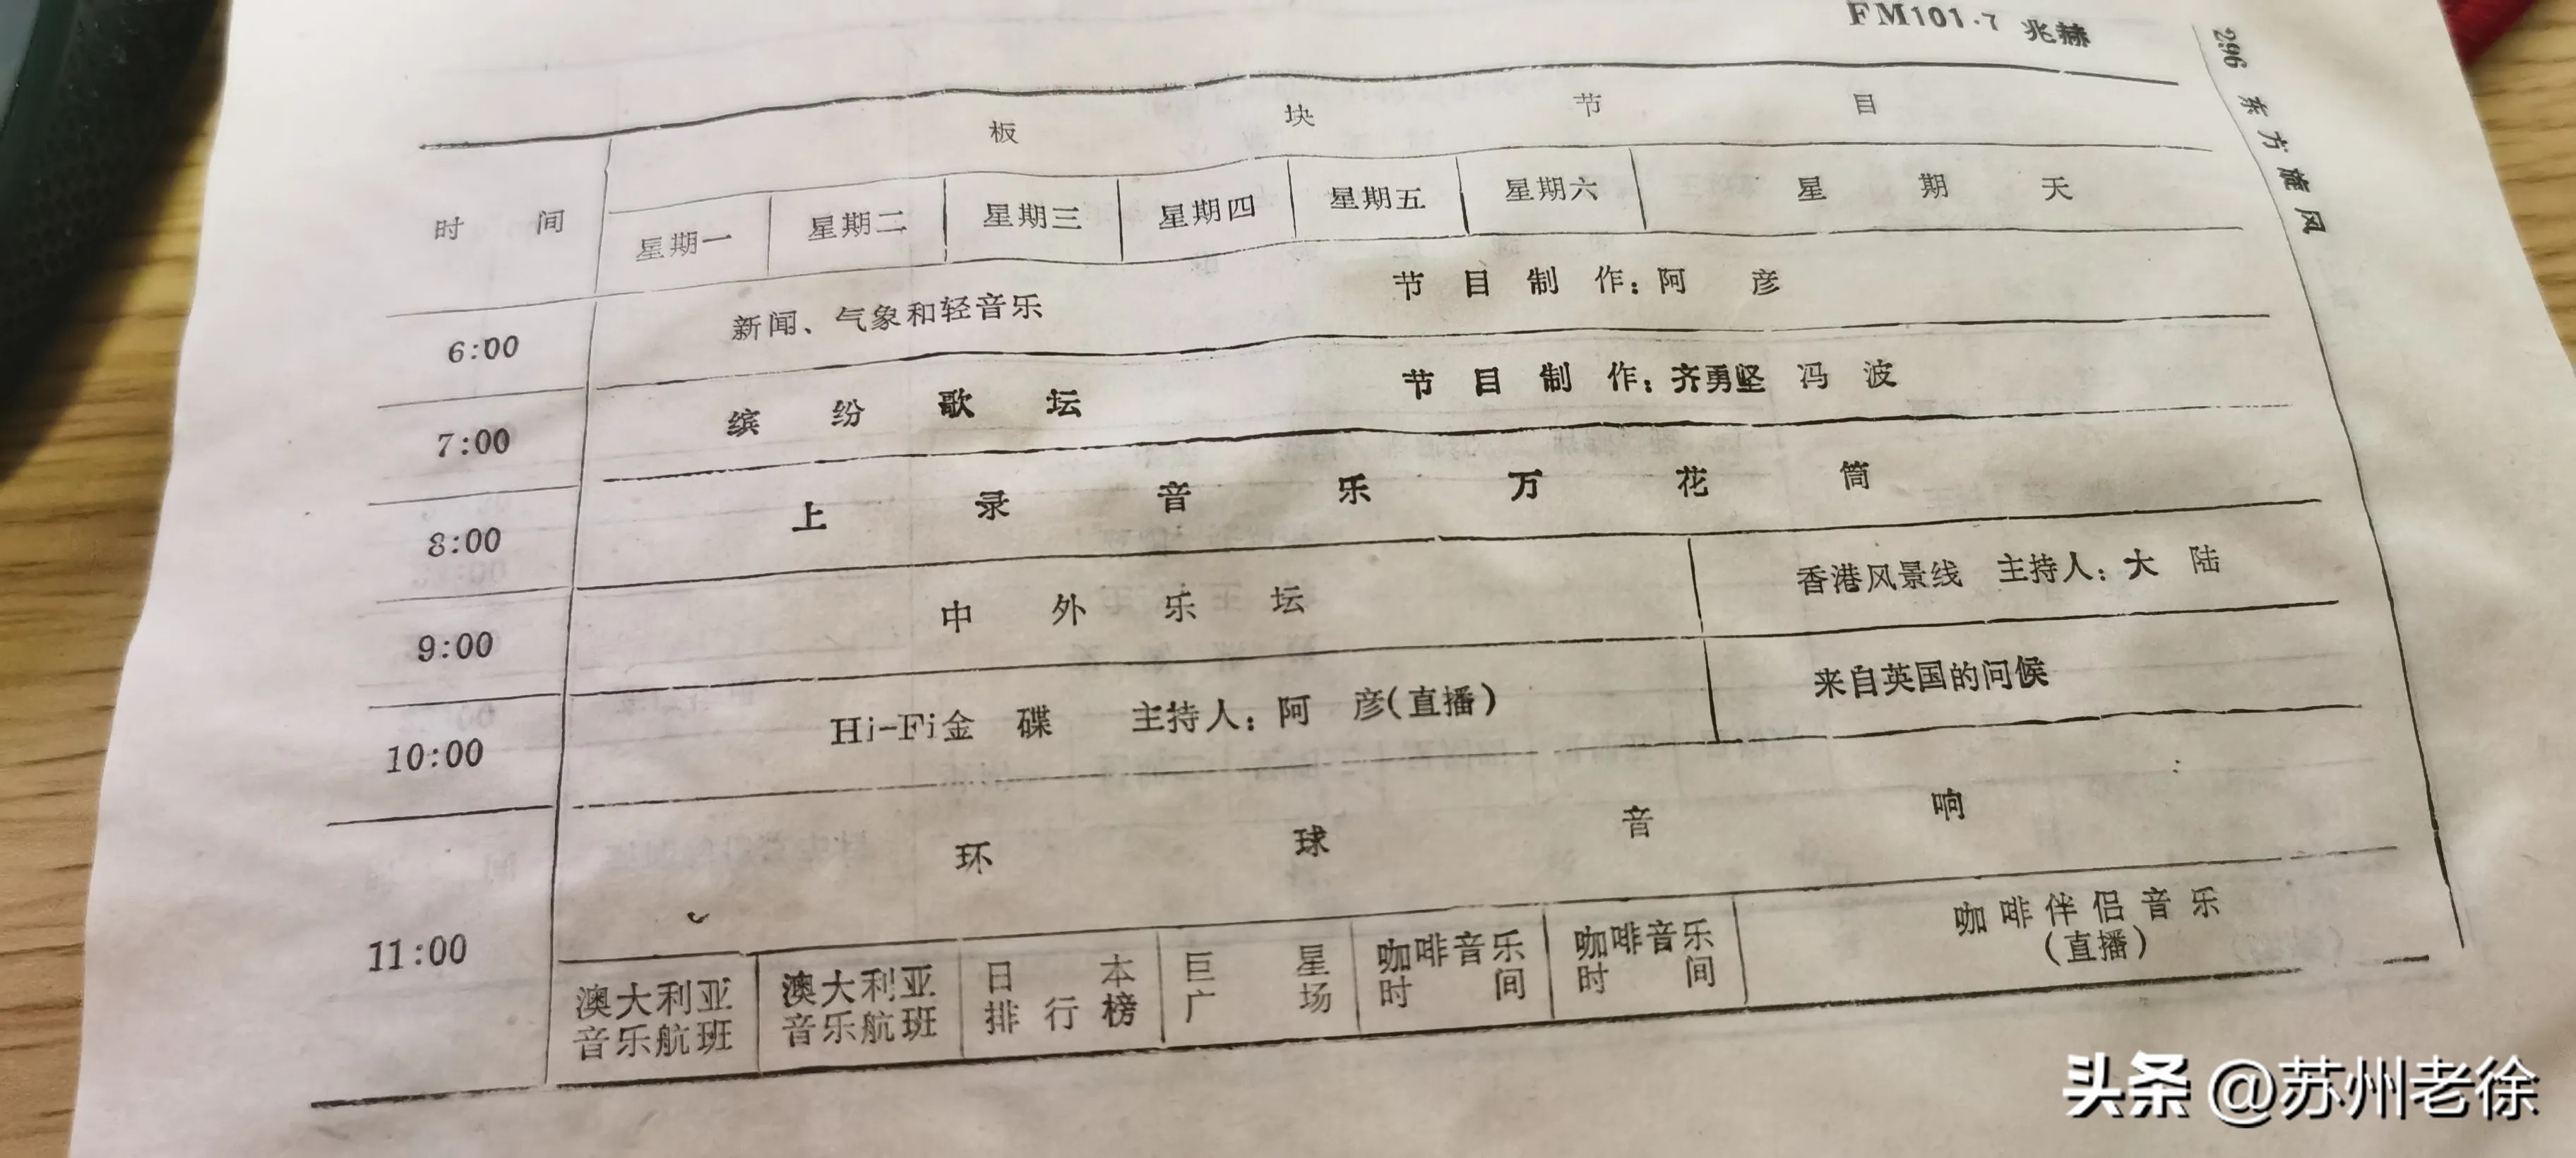 FM101·7 兆赫
296 东方旋风
板块节目
时间
星期一 星期二 星期三 星期四 星期五 星期六 星期天
6:00 新闻、气象和轻音乐 节目制作：阿彦
7:00 缤纷歌坛 节目制作：齐勇坚 冯波
8:00 上录音乐万花筒
9:00 中外乐坛 香港风景线 主持人：大陆
10:00 Hi-Fi金碟 主持人：阿彦(直播) 来自英国的问候
环球音响
11:00
澳大利亚
音乐航班
澳大利亚
音乐航班
日本
排行榜
巨星
广场
咖啡音乐
时间
咖啡音乐
时间
咖啡伴侣音乐
(直播)
头条 @苏州老徐